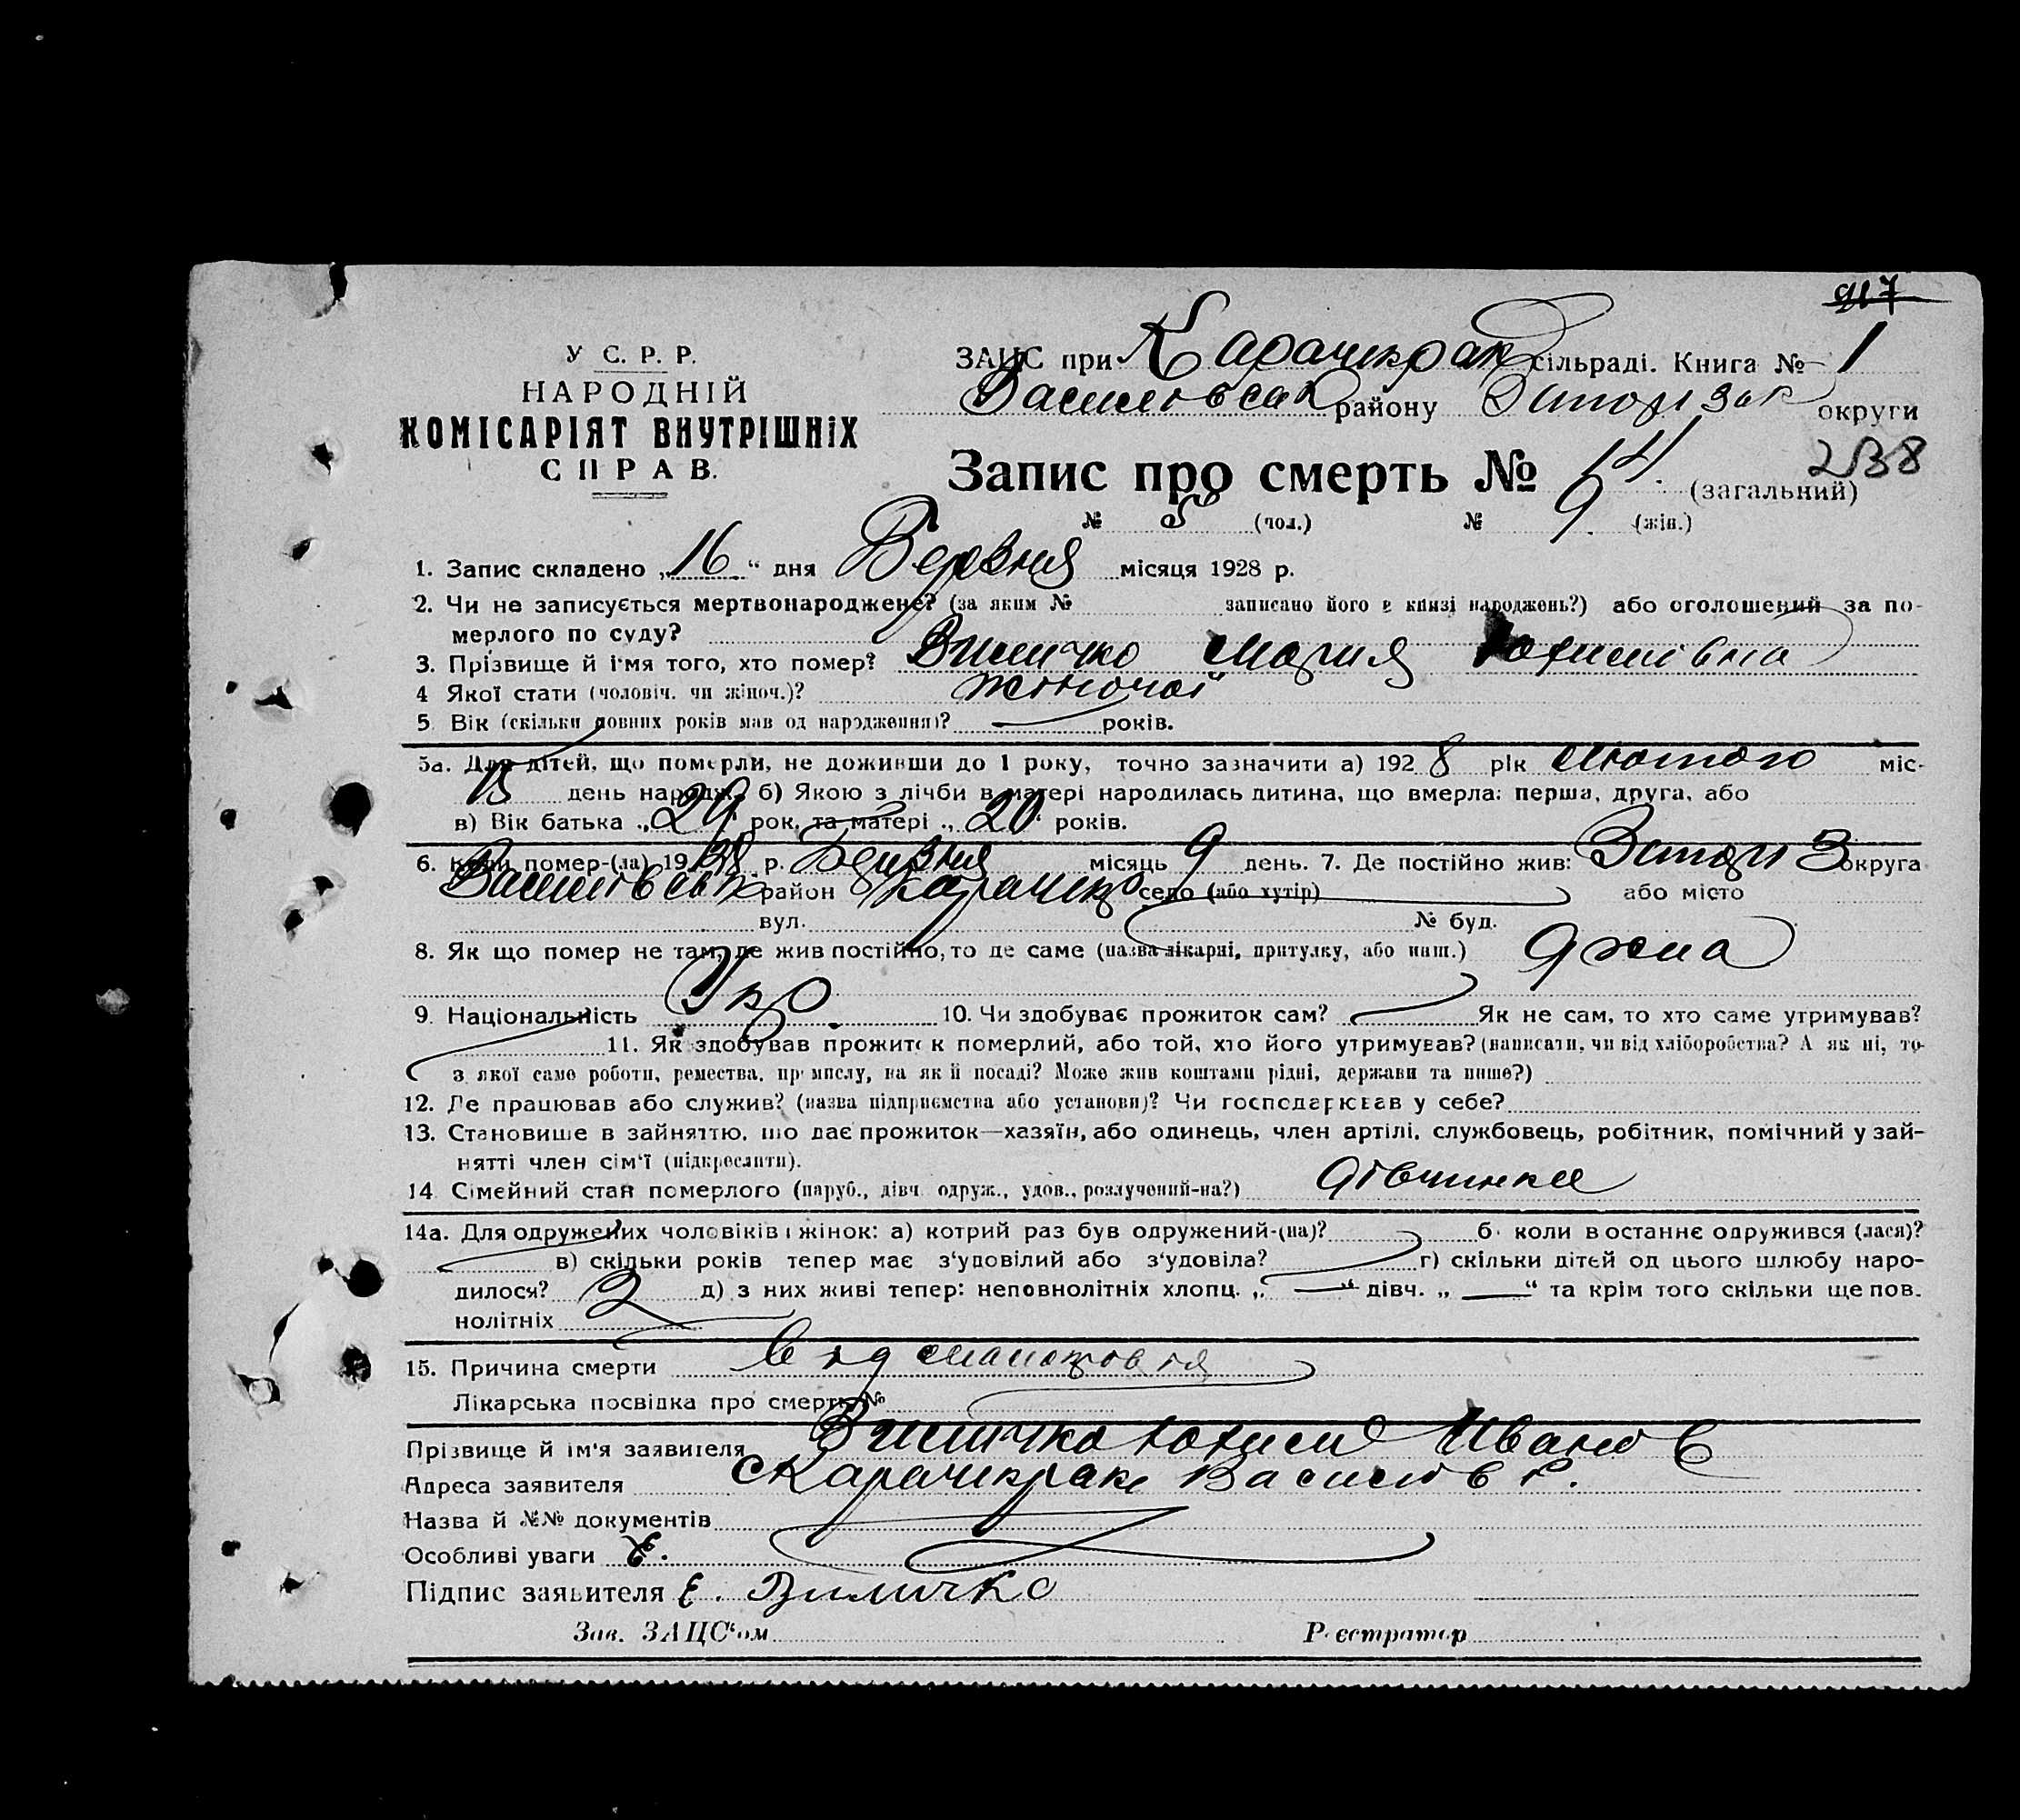 917
У С. Р. Р.
НАРОДНІЙ
КОМІСАРІЯТ ВНУТРІШНІХ
СПРАВ.
ЗАЦС при Карачекрак сільраді. Книга № 1
Василівськ району Запоріз округи
Запис про смерть № 14. (загальний) 238
№ 5 (чол.) № 9 (жін.)
1. Запис складено „16“ дня Червня місяця 1928 р.
2. Чи не записується мертвонароджене? (за яким № записано його в книзі народжень?) або оголошений за по-
мерлого по суду?
3. Прізвище й ім'я того, хто помер? Мария Юхимівна
4 Якої стати (чоловіч. чи жіноч.)? жіночої
5. Вік (скільки повних років мав од народження)? років.
5а. Для дітей, що померли, не доживши до 1 року, точно зазначити а) 1928 рік Лютого міс-
день народж. б) Якою з лічби в матері народилась дитина, що вмерла: перша, друга, або
в) Вік батька „29 рок. та матері „20 років.
6. Коли помер-(ла) 1928 р. Червня місяць 9 день. 7. Де постійно жив: Запоріз округа
Василівськ район Карачекр село (або хутір) або місто
вул. № буд.
8. Як що помер не там, де жив постійно, то де саме (назва лікарні, притулку, або инш.)
9. Національність Укр. 10. Чи здобуває прожиток сам? Як не сам, то хто саме утримував?
11. Як здобував прожиток померлий, або той, хто його утримував? (написати, чи від хліборобства? А як ні, то
з якої саме роботи, ремества, промислу, на якій посаді? Може жив коштами рідні, держави та инше?)
12. Де працював або служив? (назва підприємства або установи)? Чи господарював у себе?
13. Становище в зайняттю, що дає прожиток—хазяїн, або одинець, член артілі, службовець, робітник, помічний у зай-
нятті член сім'ї (підкреслити).
14. Сімейний стан померлого (паруб., дівч. одруж., удов., розлучений-на?) дівчинка
14а. Для одружених чоловіків і жінок: а) котрий раз був одружений-(на)? б) коли в останнє одружився (лася)?
в) скільки років тепер має з'удовілий або з'удовіла? г) скільки дітей од цього шлюбу наро-
дилося? 2 д) з них живі тепер: неповнолітніх хлопц. „—“ дівч. „—“ та крім того скільки ще пов.
нолітніх
15. Причина смерти від малокровія
Лікарська посвідка про смерть №
Прізвище й ім'я заявителя Юхим Иванов
Адреса заявителя с Карачекрак Василів Р.
Назва й №№ документів
Особливі уваги
Підпис заявителя Е.
Зав. ЗАЦС'ом Реєстратор